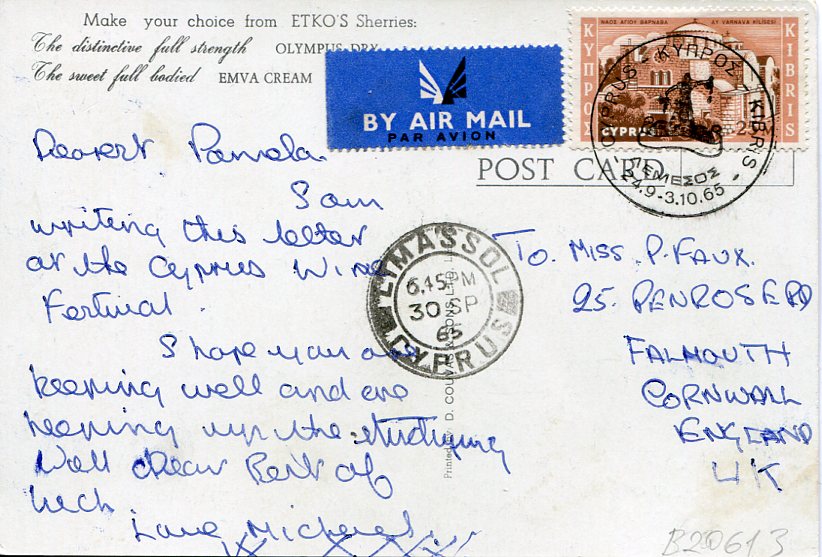 Make your choice from ETKO'S Sherries:
The distinctive full strength OLYMPUS DRY
The sweet full bodied EMVA CREAM
BY AIR MAIL
PAR AVION
ΝΑΟΣ ΑΓΙΟΥ ΒΑΡΝΑΒΑ AY VARNAVA KILISESI
ΚΥΠΡΟΣ
KIBRIS
CYPRUS
CYPRUS - ΚΥΠΡΟΣ - KIBRIS
ΛΕΜΕΣΟΣ
24.9-3.10.65
POST CARD
Dearest Pamela.
I am
writing this letter
at the Cyprus Wine
Festival.
I hope you are
keeping well and are
keeping up the studying
Well dear Best of
luck.
Love Michael.
XXX
LYMASSOL
6.45 PM
30 SP
65
CYPRUS
Printed by D. COU
To. MISS. P. FAUX.
25. PENROSE RD
FALMOUTH
CORNWALL
ENGLAND
UK
B20613